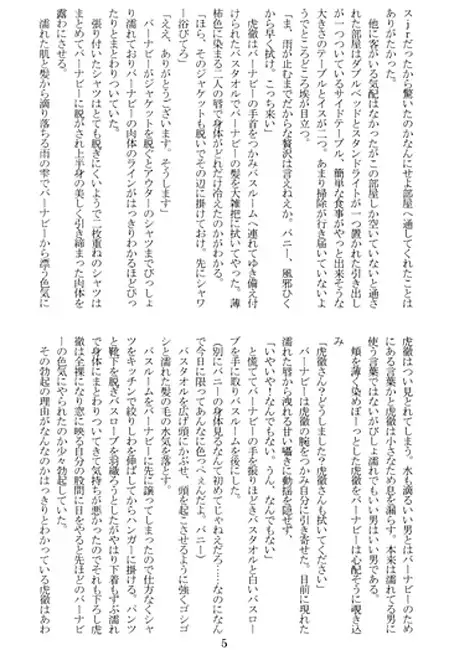 ｓ・ｊｒだったから驚いたのかなんにせよ部屋へ通してくれたことは
ありがたかった。
　他に客がいる気配はなかったがこの部屋しか空いていないと通さ
れた部屋はダブルベッドとスタンドライトが一つ置かれた引き出し
が一つついているサイドテーブル、簡単な食事がやっと出来そうな
大きさのテーブルとイスが二つ。あまり掃除が行き届いていないよ
うでところどころ埃が目立つ。
「ま、雨が止むまでだからな贅沢は言えねぇか。バニー、風邪ひく
から早く拭け。こっち来い」
　虎徹はバーナビーの手首をつかみバスルームへ連れてゆき備え付
けられたバスタオルでバーナビーの髪を大雑把に拭いてやった。薄
柿色に染まる二人の唇で身体がどれだけ冷えたのかがわかる。
「ほら、そのジャケットも脱いでその辺に掛けておけ。先にシャワ
ー浴びてろ」
「ええ、ありがとうございます。そうします」
　バーナビーがジャケットを脱ぐとアウターのシャツまでびっしょ
り濡れておりバーナビーの肉体のラインがはっきりわかるほどぴっ
たりとまとわりついていた。
　張り付いたシャツはとても脱ぎにくいようで二枚重ねのシャツは
まとめてバーナビーに脱がされ上半身の美しく引き締まった肉体を
露わにさせる。
　濡れた肌と髪から滴り落ちる雨の雫でバーナビーから漂う色気に
虎徹はつい見とれてしまう。水も滴るいい男とはバーナビーのため
にある言葉かと虎徹は小さなため息を漏らす。本来は濡れてる男に
使う言葉ではないがびしょ濡れでもいい男はいい男である。
　頬を薄く染めぼーっとした虎徹をバーナビーは心配そうに覗き込
み
「虎徹さん？どうしました？虎徹さんも拭いてください」
　バーナビーは虎徹の腕をつかみ自分に引き寄せた。目前に現れた
濡れた唇から洩れる甘い囁きに動揺を隠せず、
「いやいや！なんでもない。うん、なんでもない」
　と慌ててバーナビーの手を振りほどきバスタオルと白いバスロー
ブを手に取りバスルームを後にした。
（別にバニーの身体見るなんて初めてじゃねぇだろ……なのになん
で今日に限ってあんなに色っぺぇんだよ。バニー）
　バスタオルを広げ頭にかぶせ、頭を起こさせるように強くゴシゴ
シと濡れた髪の毛の水気を落とす。
　バスルームをバーナビーに先に譲ってしまったので仕方なくシャ
ツをキッチンで絞りしわを伸ばしてからハンガーに掛ける。パンツ
と靴下を脱ぎバスローブを羽織ろうとしたがやはり下着もずぶ濡れ
で身体にまとわりついてきて気持ちが悪かったのでそれも下ろし虎
徹は全裸になり窓に映る自分の股間に目をやると先ほどのバーナビ
ーの色気にやられたのか少々勃起していた。
　その勃起の理由がなんなのかはっきりとわかっている虎徹はあわ
5